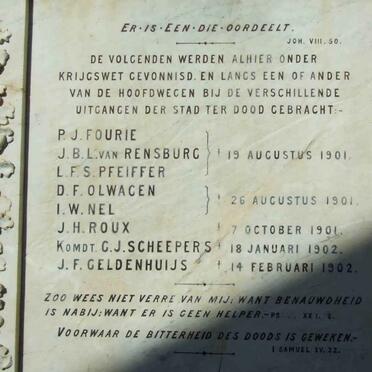 ER·IS·EEN·DIE·OORDEELT.
JOH. VIII. 50.
DE VOLGENDEN WERDEN ALHIER ONDER
KRIJGSWET GEVONNISD, EN LANGS EEN OF ANDER
VAN DE HOOFDWEGEN BIJ DE VERSCHILLENDE
UITGANGEN DER STAD TER DOOD GEBRACHT:-
P. J. FOURIE
J. B. L. VAN RENSBURG † 19 AUGUSTUS 1901.
L. F. S. PFEIFFER
D. F. OLWAGEN
† 26 AUGUSTUS 1901.
I. W. NEL
J. H. ROUX † 7 OCTOBER 1901.
KOMDT. G. J. SCHEEPERS † 18 JANUARI 1902.
J. F. GELDENHUIJS † 14 FEBRUARI 1902.
ZOO WEES NIET VERRE VAN MIJ; WANT BENAUWDHEID
IS NABIJ; WANT ER IS GEEN HELPER.- PS.
VOORWAAR DE BITTERHEID DES DOODS IS GEWEKEN.-
I SAMUEL XV. 32.